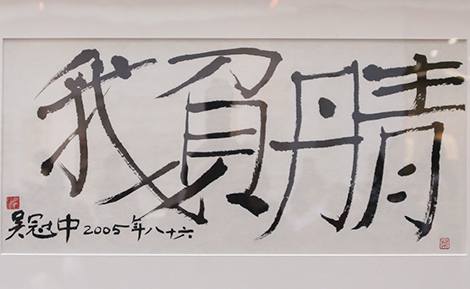 我負丹青
吴冠中 2005年八十六